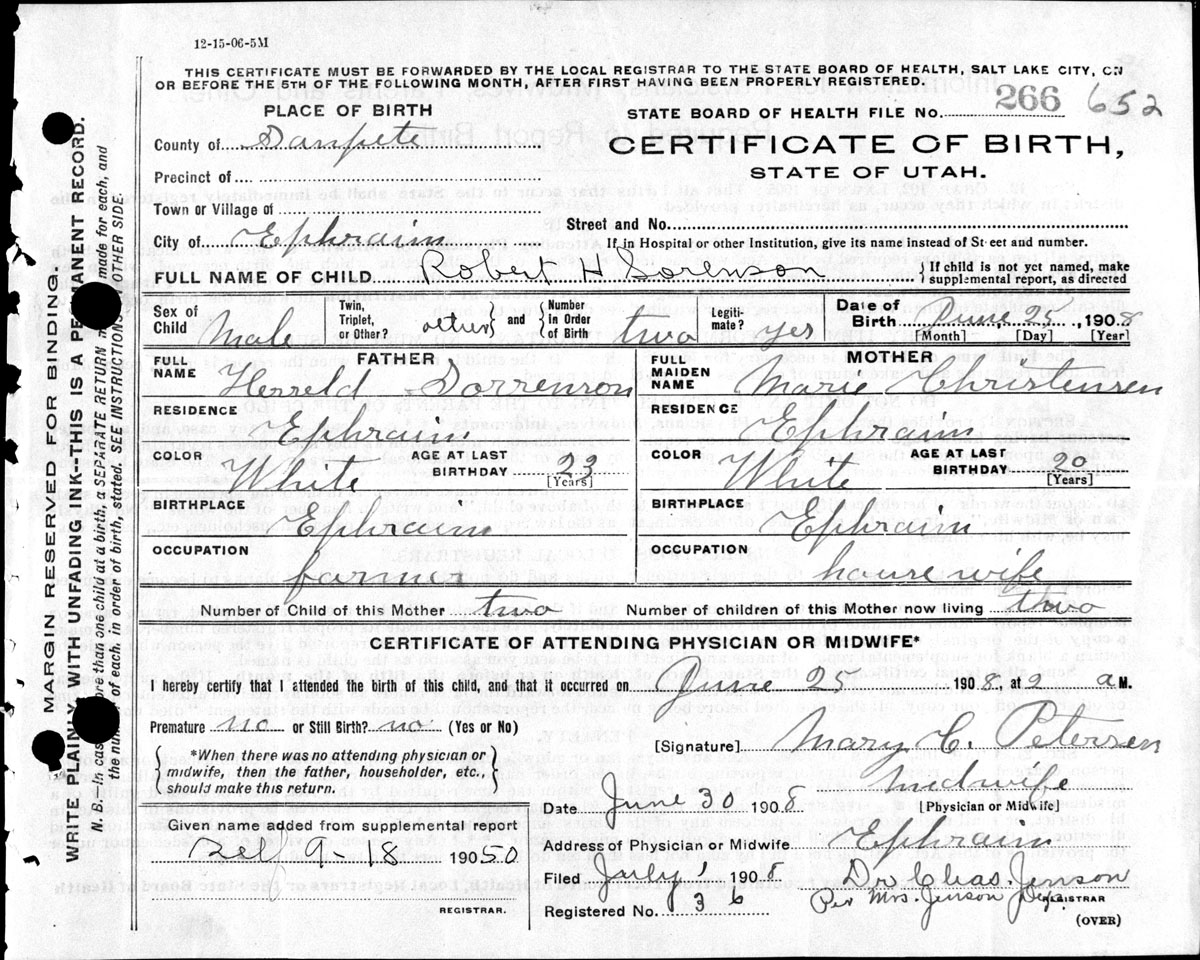 12-15-06-5M
THIS CERTIFICATE MUST BE FORWARDED BY THE LOCAL REGISTRAR TO THE STATE BOARD OF HEALTH, SALT LAKE CITY, ON
OR BEFORE THE 5TH OF THE FOLLOWING MONTH, AFTER FIRST HAVING BEEN PROPERLY REGISTERED.
PLACE OF BIRTH
STATE BOARD OF HEALTH FILE No. 266 652
County of Sanpete
CERTIFICATE OF BIRTH,
STATE OF UTAH.
Precinct of
Town or Village of
Street and No.
City of Ephraim
If in Hospital or other Institution, give its name instead of Street and number.
FULL NAME OF CHILD Robert H Sorenson
If child is not yet named, make
supplemental report, as directed
Sex of Child Male
Twin, Triplet, or Other?
and
Number in Order of Birth two
Legiti-mate? yes
Date of Birth June 25, 1908
[Month] [Day] [Year]
FATHER
FULL NAME Herreld Sorrenson
RESIDENCE Ephraim
COLOR White
AGE AT LAST BIRTHDAY 23
[Years]
BIRTHPLACE Ephraim
OCCUPATION farmer
MOTHER
FULL MAIDEN NAME Marie Christensen
RESIDENCE Ephraim
COLOR White
AGE AT LAST BIRTHDAY 20
[Years]
BIRTHPLACE Ephraim
OCCUPATION house wife
Number of Child of this Mother two
Number of children of this Mother now living two
CERTIFICATE OF ATTENDING PHYSICIAN OR MIDWIFE*
I hereby certify that I attended the birth of this child, and that it occurred on June 25 1908, at 2 a M.
Premature no or Still Birth? no (Yes or No)
*When there was no attending physician or
midwife, then the father, householder, etc.,
should make this return.
[Signature] Mary C. Petersen
midwife
[Physician or Midwife]
Date June 30 1908
Given name added from supplemental report
9-18 19050
REGISTRAR.
Address of Physician or Midwife Ephraim
Filed July 1 1908
Dr. Chas. Jenson
Registered No. 36
Per Mrs. Jenson Dep.
REGISTRAR
(OVER)
MARGIN RESERVED FOR BINDING
WRITE PLAINLY WITH UNFADING INK--THIS IS A PERMANENT RECORD.
N. B.--In case of more than one child at a birth, a SEPARATE RETURN must be made for each, and
the number of each, in order of birth, stated. SEE INSTRUCTIONS ON OTHER SIDE.